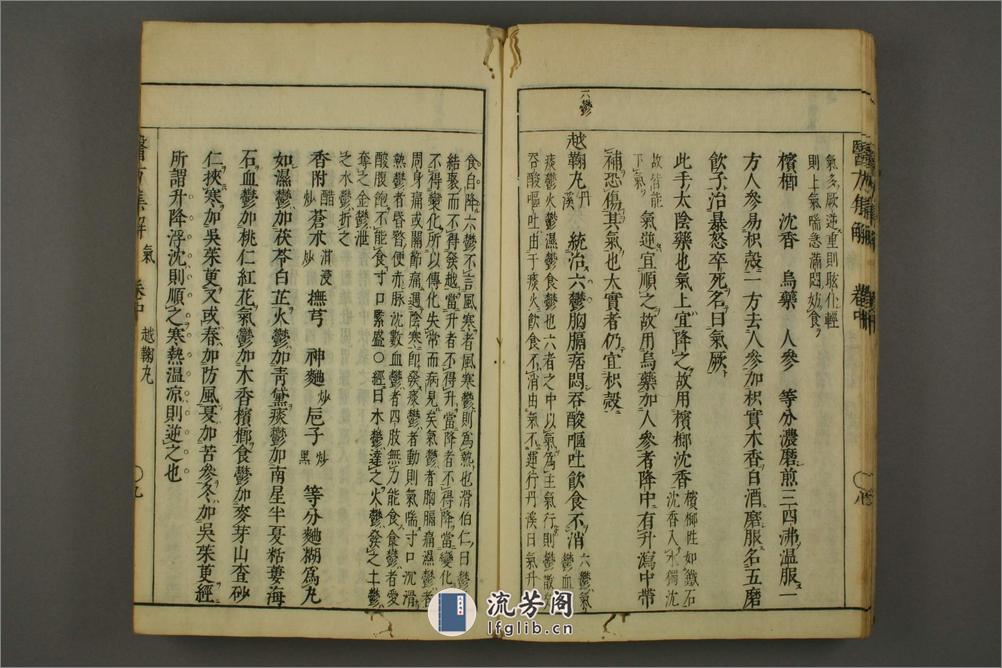 醫方集解
卷中
氣多厥逆重則眩仆輕
則上氣喘急滿悶妨食
檳榔 沈香 烏藥 人參 等分濃磨煎三四沸溫服一
方人參易枳殼一方去人參加枳實木香白酒磨服名五磨
飲子治暴怒卒死名曰氣厥
此手太陰藥也氣上宜降之故用檳榔沈香檳榔性如鐵石
沈香入水獨沈
故皆能
下氣
氣逆宜順之故用烏藥加人參者降中有升瀉中帶
補恐傷其氣也大實者仍宜枳殼
六鬱
越鞠丸丹
溪
統治六鬱胸膈痞悶吞酸嘔吐飲食不消六鬱氣
鬱血鬱
痰鬱火鬱濕鬱食鬱也六者之中以氣為主氣行則鬱散矣
吞酸嘔吐由于痰火飲食不消由氣不運行丹溪曰氣升則
食自降六鬱不言風寒者風寒鬱則為熱也滑伯仁曰鬱者
結聚而不得發越當升者不得升當降者不得降當變化者
不得變化所以傳化失常而病見矣氣鬱者胸膈痛濕鬱者
周身痛或關節痛遇陰寒卽發痰鬱者動則氣喘寸口沈滑
熱鬱者昏瞀便赤脉沈數血鬱者四肢無力能食食鬱者噯
酸腹飽不能食寸口緊盛○經曰木鬱達之火鬱發之土鬱
奪之金鬱泄
之水鬱折之
香附醋
炒蒼朮泔浸
炒 撫芎 神麯炒巵子炒
黑 等分麯糊為丸
如濕鬱加茯苓白芷火鬱加靑黛痰鬱加南星半夏栝蔞海
石血鬱加桃仁紅花氣鬱加木香檳榔食鬱加麥芽山査砂
仁挾寒加吳茱萸又或春加防風夏加苦參冬加吳茱萸經
所謂升降浮沈則順之寒熱溫凉則逆之也
醫方集解
氣
卷中
越鞠丸
九
流芳阁
lfglib.cn